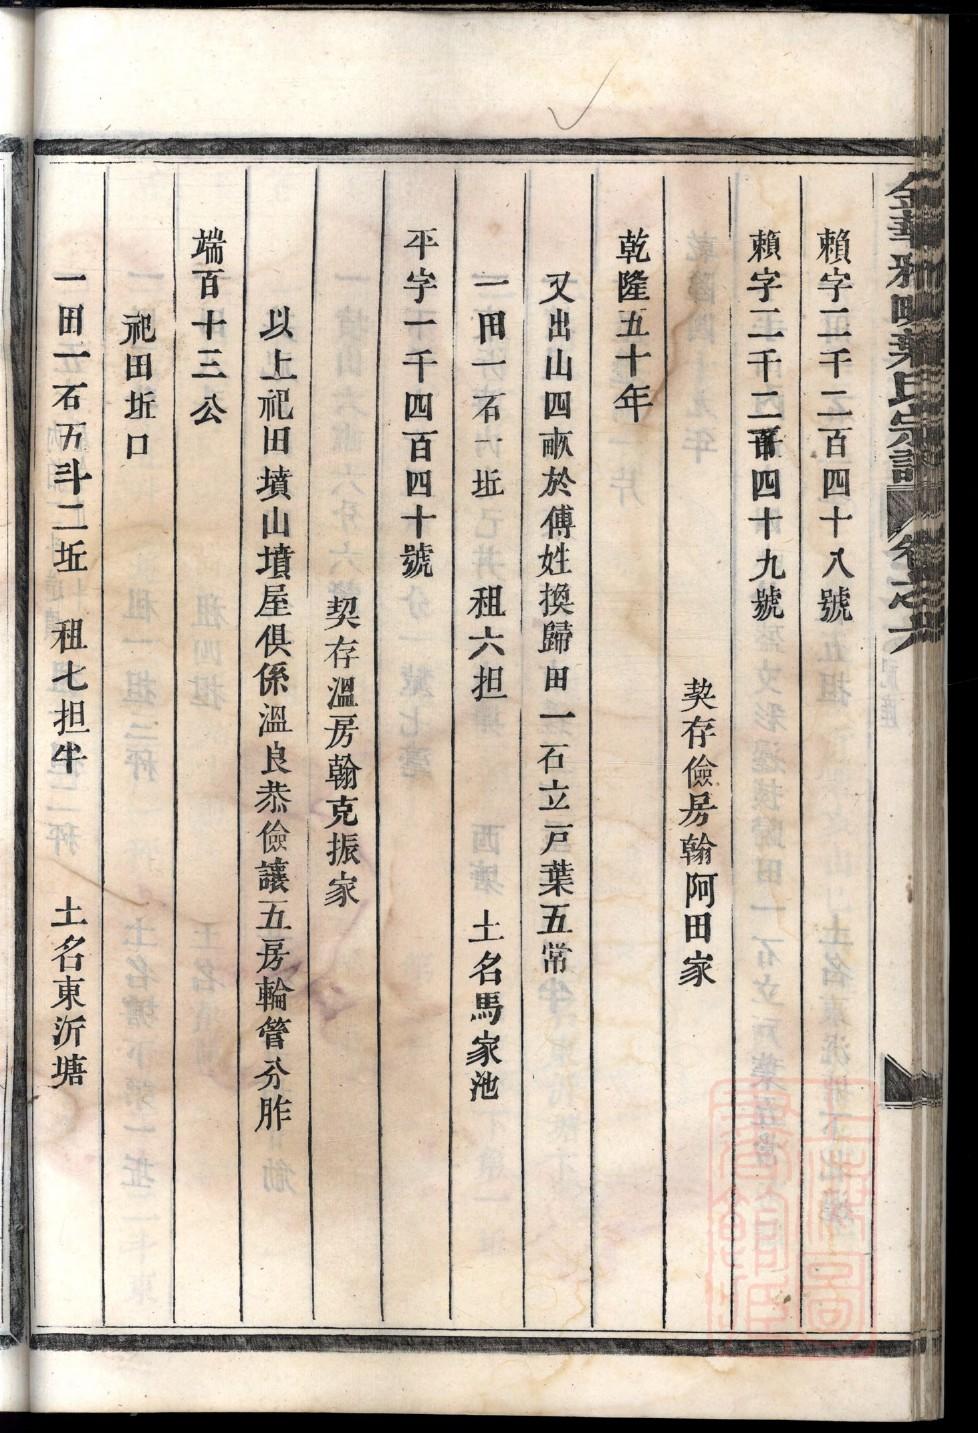 賴字二千二百四十八號
賴字二千二百四十九號
契存儉房翰阿田家
乾隆五十年
又出山四畝於傅姓換歸田一石立戶葉五常
一田一石 坵 租六担 土名馬家池
平字一千四百四十號
契存溫房翰克振家
以上祀田墳山墳屋俱係溫良恭儉讓五房輪管分胙
端百十三公
祀田坵口
一田一石五斗二坵 租七担半 土名東沂塘